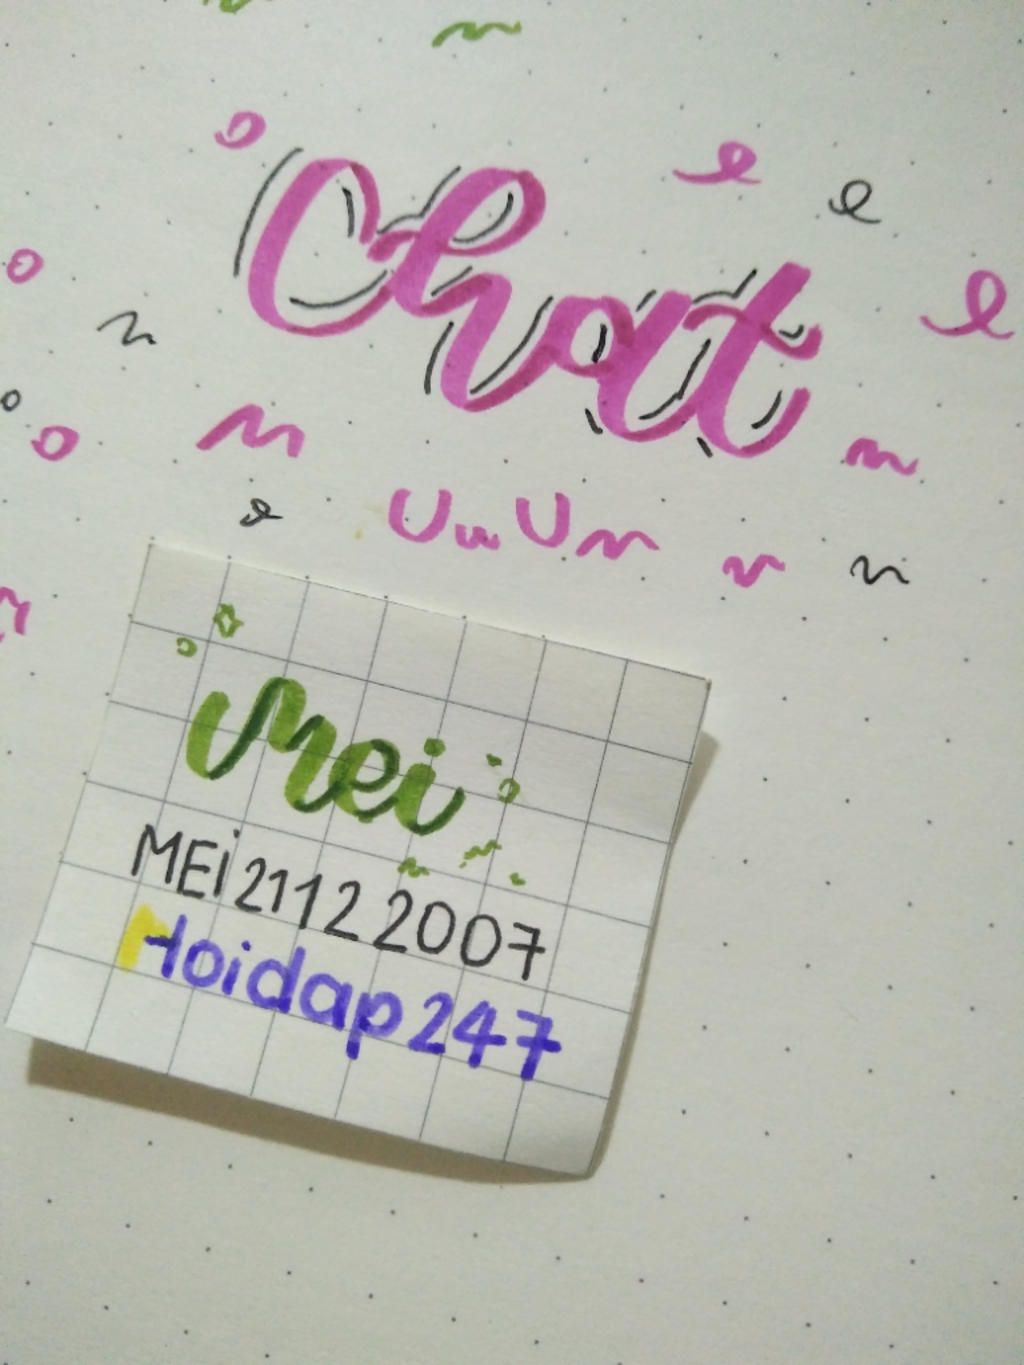 Chat
Mei
MEi21122007
Hoidap247